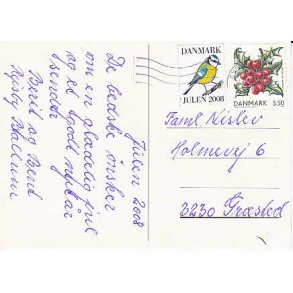 Julen 2008
De bedste ønsker
om en glædelig jul
og et godt nytår
sender
Bent og Bent
DANMARK
JULEN 2008
DANMARK 5.50
Faml. Nislev
Holmevej 6
3230 Græsted